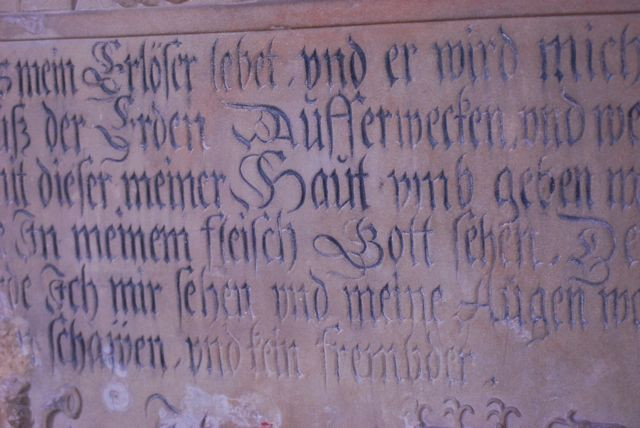 mein Erlöser lebet. vnd er wird mich
der Erden Aufferwecken, vnd we
mit dieser meiner Haut vmb geben
In meinem fleisch Gott sehen. De
Ich mir sehen vnd meine Augen we
schawen. vnd kein frembder.